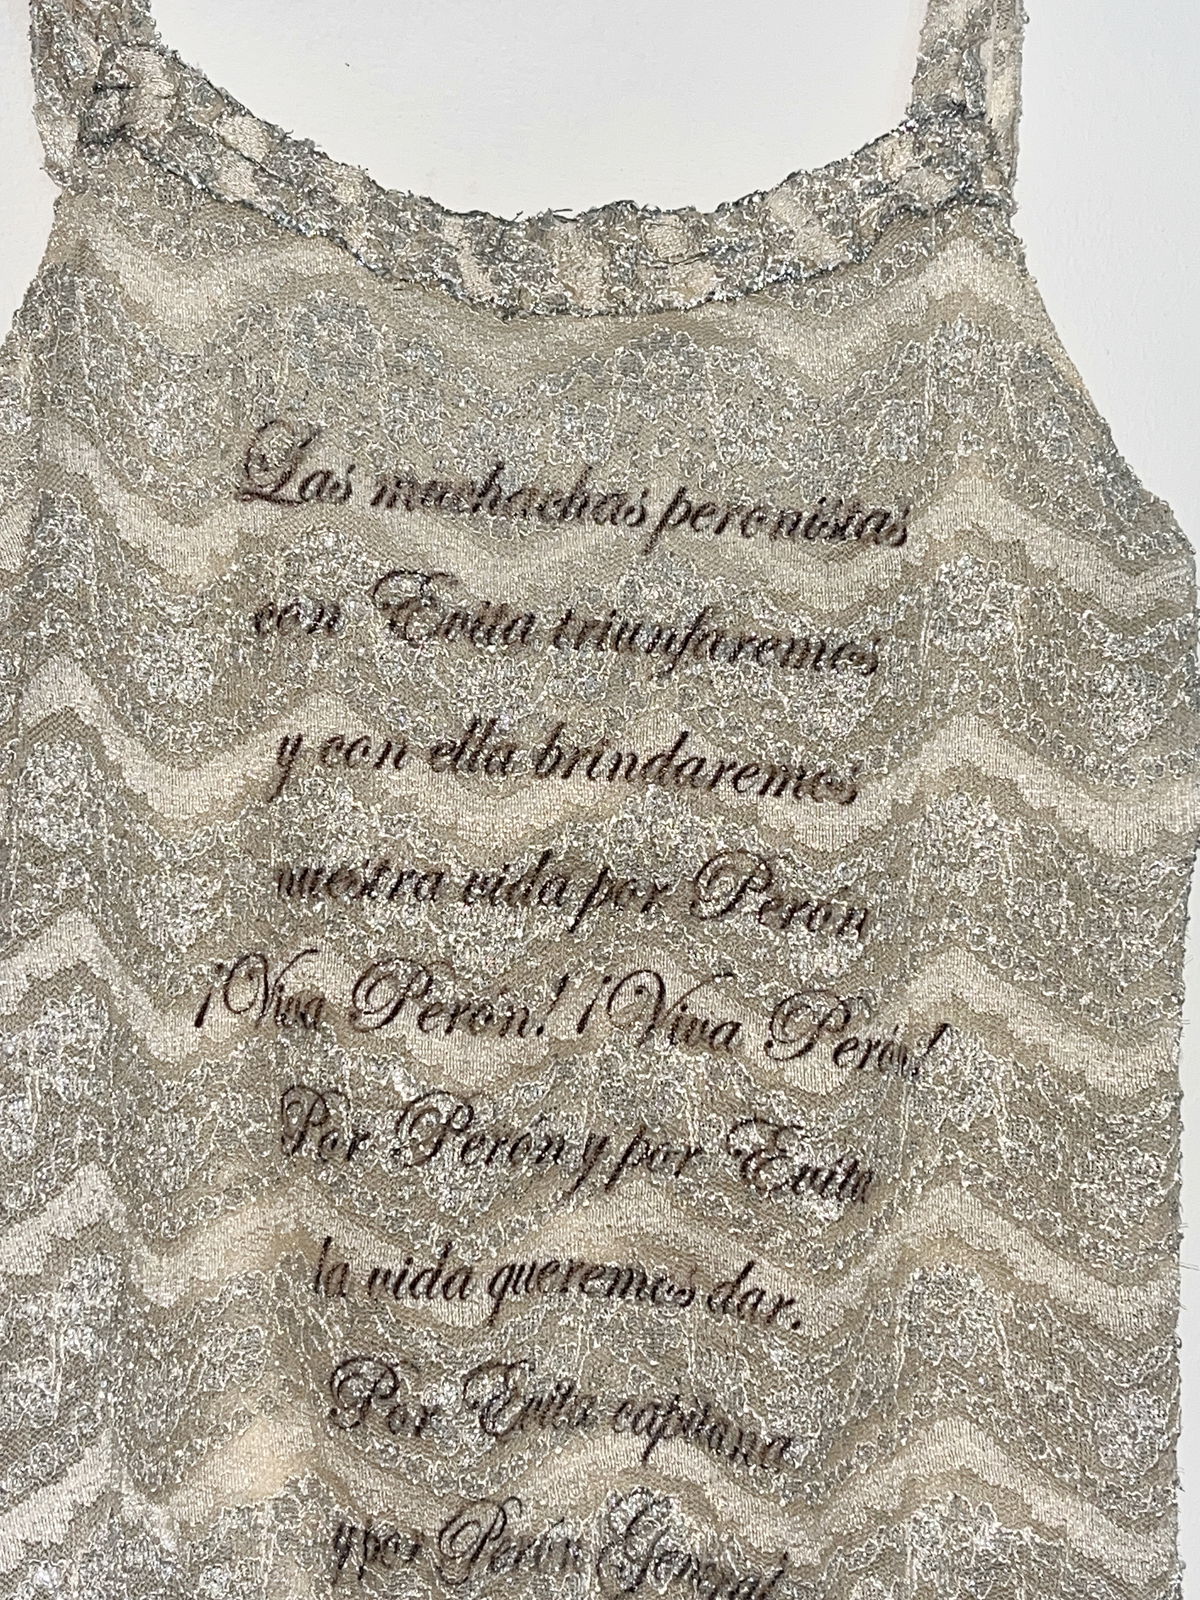 Las muchachas peronistas
con Evita triunfaremos
y con ella brindaremos
nuestra vida por Perón
¡Viva Perón! ¡Viva Perón!
Por Perón y por Evita
la vida queremos dar.
Por Evita capitana
y por Perón General